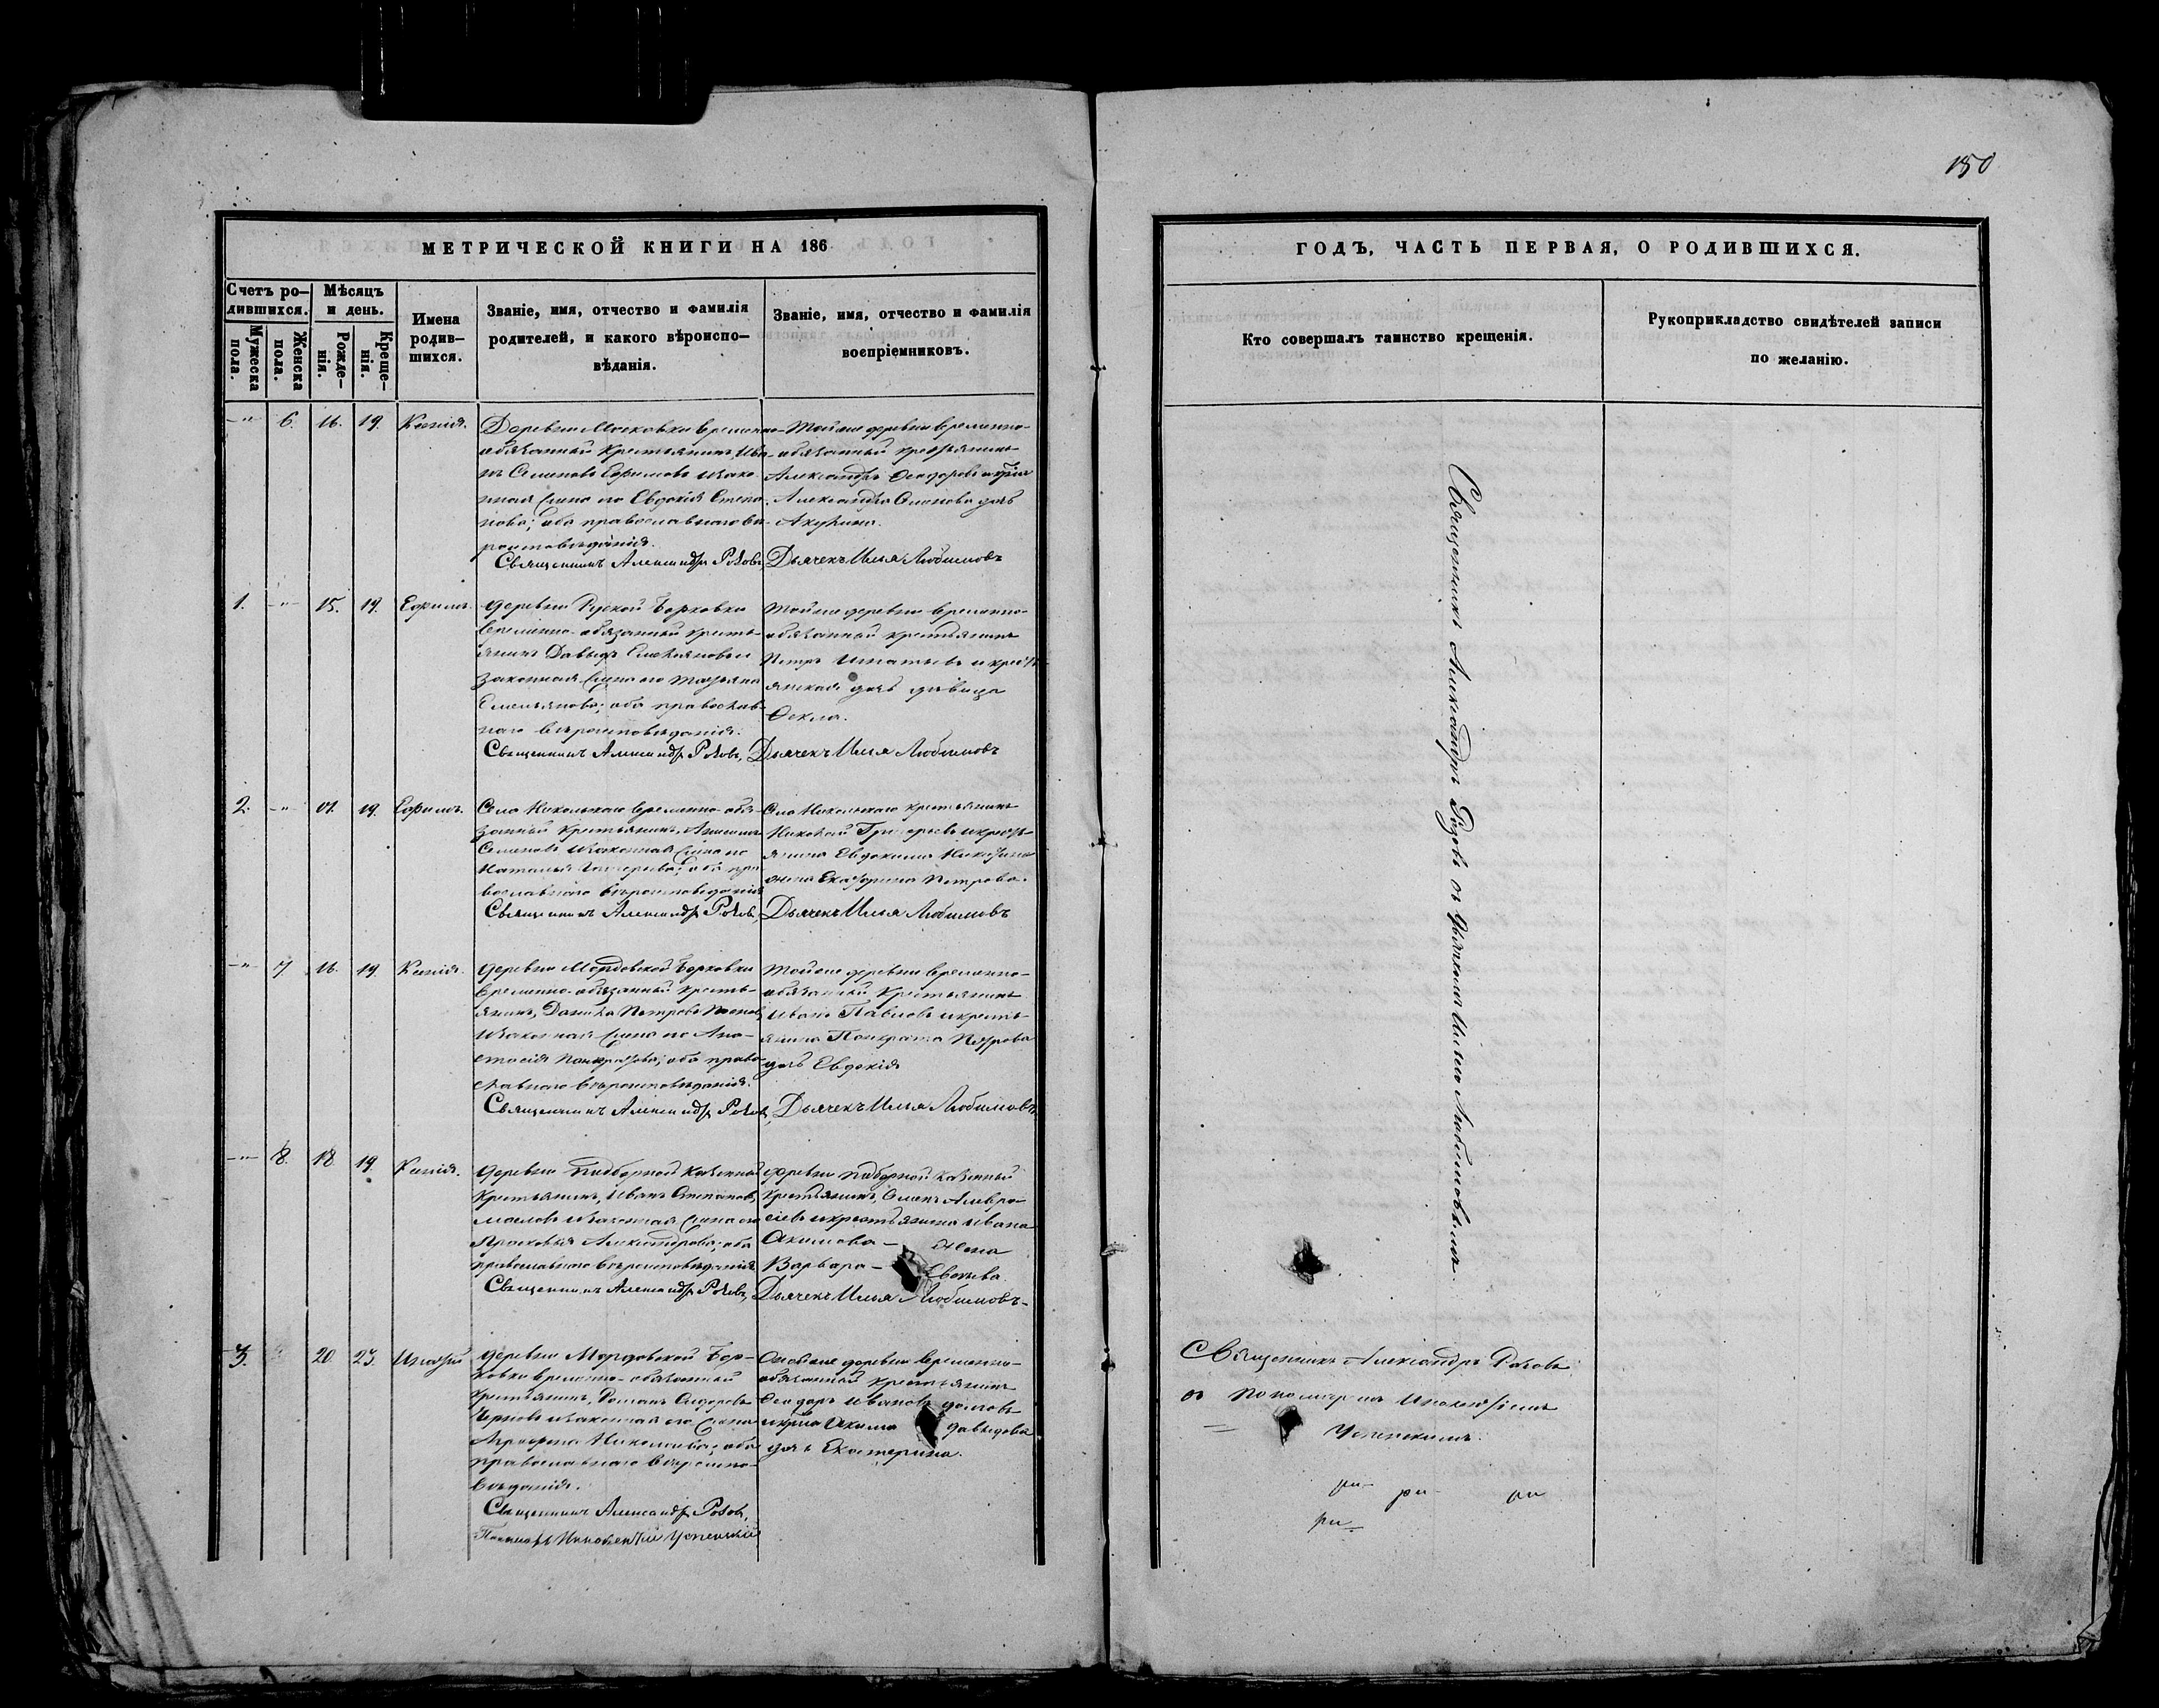 150
МЕТРИЧЕСКОЙ КНИГИ НА 186
Счетъ ро-
дившихся.
Мужеска
пола.
Женска
пола.
Мѣсяцъ
и день.
Рожде-
нія.
Креще-
нія.
Имена
родив-
шихся.
Званіе, имя, отчество и фамилія
родителей, и какого вѣроиспо-
вѣданія.
Званіе, имя, отчество и фамилія
воспріемниковъ.
6. 16. 19. Ксенія.
Деревни Московки временно-
обязанный крестьянинъ Ива-
нъ Семеновъ Ефимовъ и зако
нная жена его Евдокія Степа
нова; оба православнаго вѣ-
роисповѣданія.
Священникъ Александръ Розовъ,
Тойже деревни временно-
обязанный крестьянинъ
Александръ Ѳеодоровъ и
Александра дочь
Акулина.
Дьячекъ Илья Любимовъ
1. 15. 19. Ефимъ.
деревни Руской Борковки
временно-обязанный кресть-
янинъ Давыдъ Емельяновъ и
законная жена его Татьяна
Емельянова; оба православ-
наго вѣроисповѣданія.
Священникъ Александръ Розовъ,
Тойже деревни временно-
обязанный крестьянинъ
Петръ Игнатьевъ и крестъ-
янская дочь дѣвица
Ѳекла.
Дьячекъ Илья Любимовъ
2. 19. Ефимъ.
Села Никольскаго временно-обя-
занный крестьянинъ
Семеновъ и законная жена его
Наталья Григорьева; оба пра
вославнаго вѣроисповѣданія
Священникъ Александръ Розовъ,
Села Никольскаго крестьянинъ
Николай Григорьевъ и кресть-
янина Евдокима Никитина
жена Екатерина Петрова.
Дьячекъ Илья Любимовъ
7 16. 19. Ксенія.
деревни Мордовской Борковки
временно-обязанный кресть-
янинъ, Данила Петровъ
и законная жена его Ана-
стасія Панкратова; оба право
славнаго вѣроисповѣданія.
Священникъ Александръ Розовъ,
Тойже деревни временно-
обязанный крестьянинъ
Иванъ Павловъ и кресть-
янина Панкрата Петрова
дочь Евдокія
Дьячекъ Илья Любимовъ
8. 18. 19. Ксенія.
деревни Подборной казенный
крестьянинъ, Иванъ Степановъ
Масловъ и законная жена его
Прасковья Александрова; оба
православнаго вѣроисповѣданія
Священникъ Александръ Розовъ,
деревни Подборной казенный
крестьянинъ, Семенъ Амвро-
сіевъ и крестьянина Ивана
Акимова - жена
Варвара -
Дьячекъ Илья Любимовъ-
3. 20. 23. Игнатій
деревни Мордовской Бор-
ковки временно-обязанный
крестьянинъ, Романъ Сидоровъ
Черновъ и законная его жена
Агрофена Николаева; оба
православнаго вѣроиспо-
вѣданія.
Священникъ Александръ Розовъ,
Пономарь Иннокентій Успенскій
Онойже деревни временно-
обязанный крестьянинъ
Ѳеодоръ Ивановъ Долговъ
Давыдова
дочь Екатерина.
ГОДЪ, ЧАСТЬ ПЕРВАЯ, О РОДИВШИХСЯ.
Кто совершалъ таинство крещенія.
Рукоприкладство свидѣтелей записи
по желанію.
Священникъ Александръ Розовъ съ дьячкомъ Ильею Любимовымъ.
Священникъ Александръ Розовъ
съ пономаремъ Иннокентіемъ
Успенскимъ.